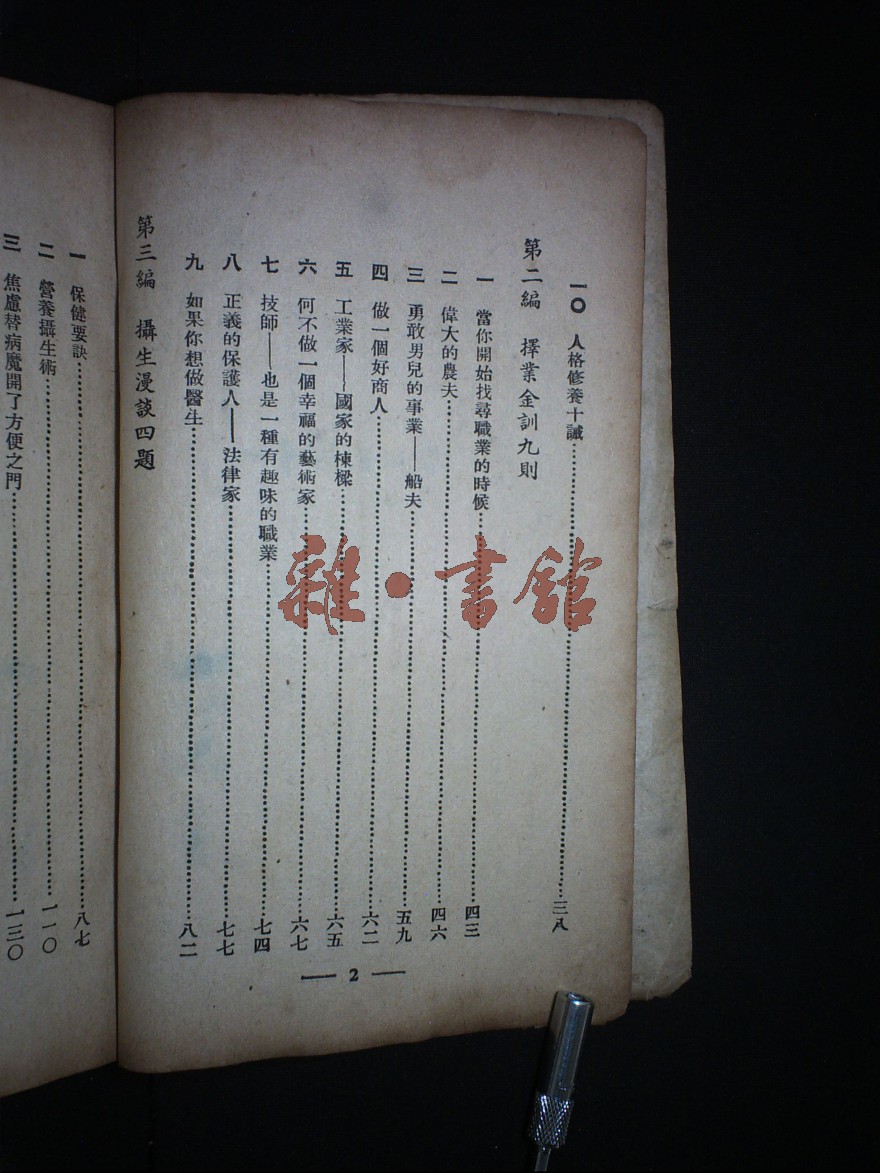 一〇 人格修養十誡……三八
第二編 擇業金訓九則
一 當你開始找尋職業的時候……四三
二 偉大的農夫……四六
三 勇敢男兒的事業——船夫……五九
四 做一個好商人……六二
五 工業家——國家的棟樑……六五
六 何不做一個幸福的藝術家……六七
七 技師——也是一種有趣味的職業……七四
八 正義的保護人——法律家……七七
九 如果你想做醫生……八二
第三編 攝生漫談四題
— 2 —
一 保健要訣……八七
二 營養攝生術……一一〇
三 焦慮替病魔開了方便之門……一三〇
雜·書館